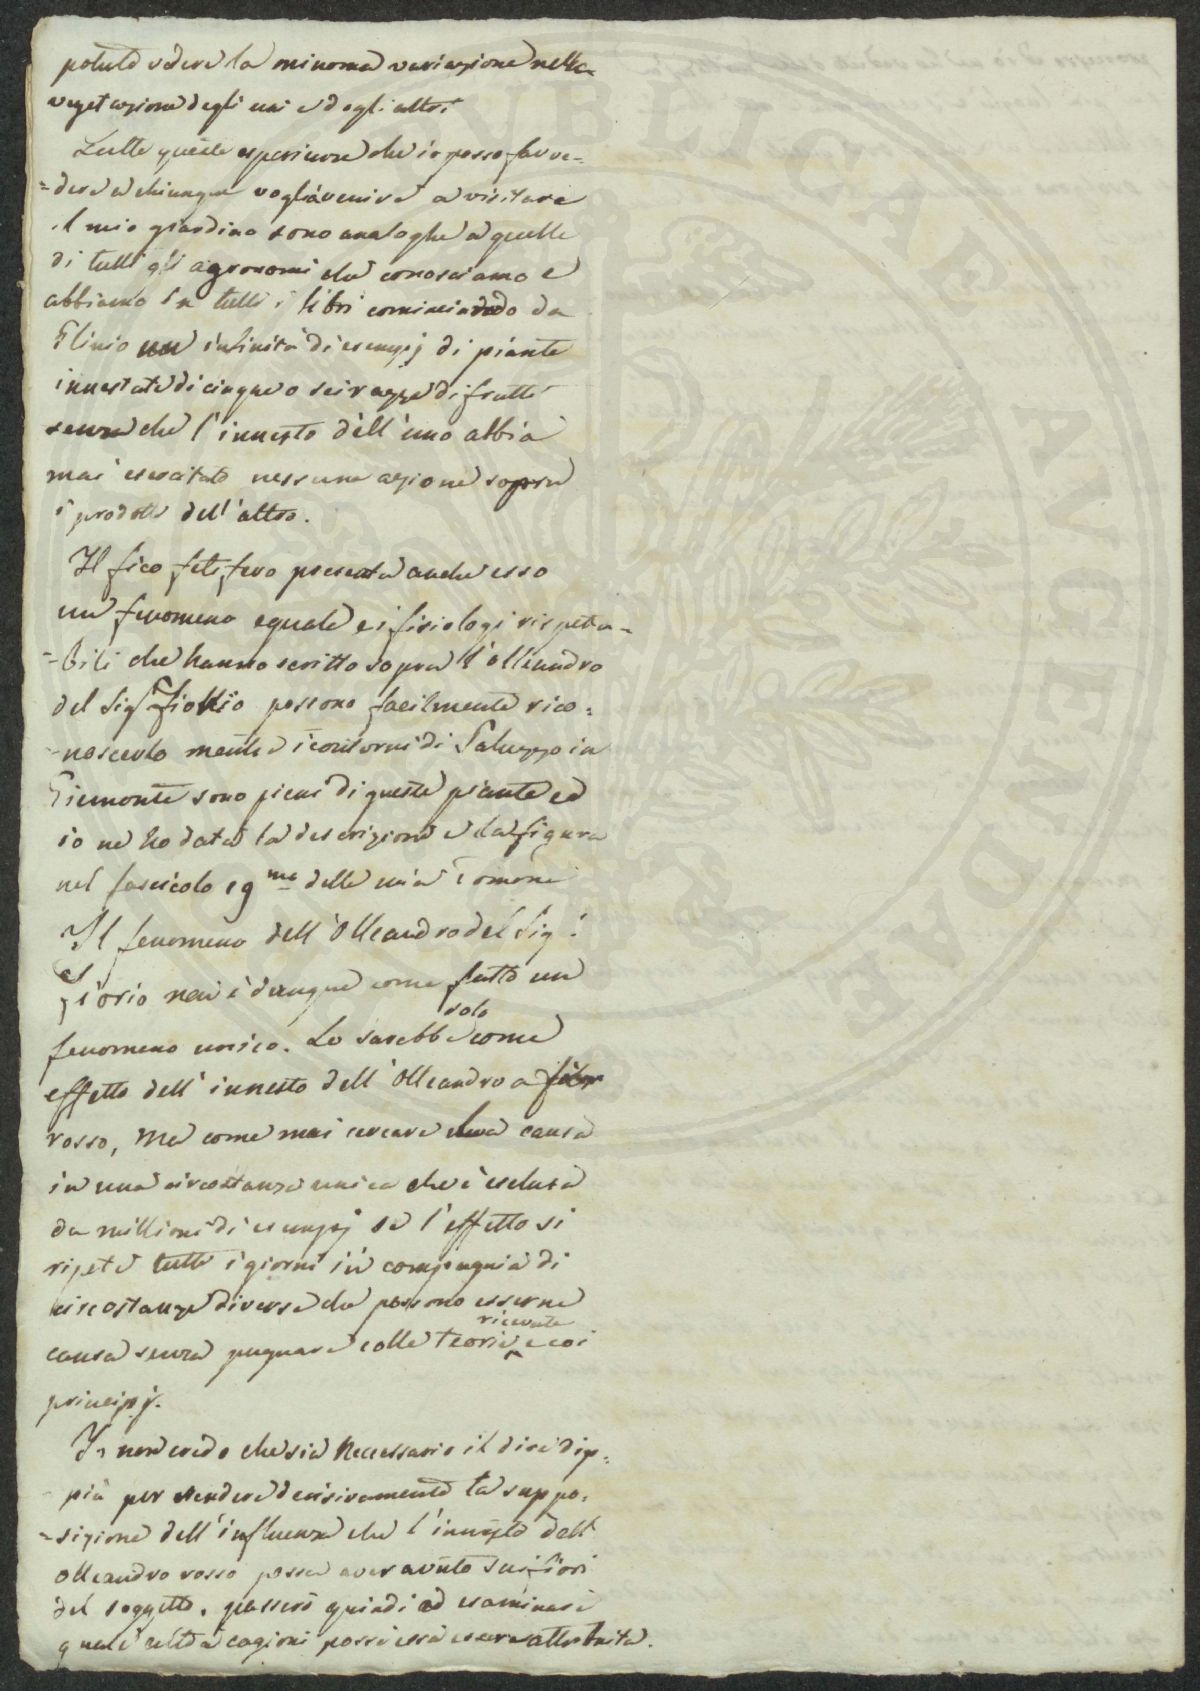 potuto vedere la minoma variazione nella
vegetazione degli uni e degli altri
Tutte queste esperienze che io posso far ve-
=dere a chiunque voglia venire a visitare
il mio giardino sono analoghe a quelle
di tutti gli agronomi che conosciamo e
abbiamo in tutti i libri cominciando da
Plinio un infinità di esempj di piante
innestate di cinque o sei razze di frutti
senza che l'innesto dell'uno abbia
mai esercitato nessuna azione sopra
i prodotti dell'altro.
Il fico fetifero presenta anche esso
un fenomeno eguale e i fisiologi rispeta-
=bili che hanno scritto sopra l'olleandro
del Sigr Fiorio possono facilmente rico=
=noscerlo mentre i contorni di Saluzzo in
Piemonte sono pieni di queste piante ed
io ne ho data la descrizione e la figura
nel fascicolo 19me della mia Pomona
Il fenomeno dell'Olleandro del Sigr
Fiorio non è dunque come fatto un
fenomeno unico. Lo sarebbe solo come
effetto dell'innesto dell'Olleandro a fior
rosso, Ma come mai cercare una causa
in una circostanza unica che è esclusa
da millioni di esempj se l'effetto si
ripete tutti i giorni in compagnia di
circostanze diverse che possono esserne
causa senza pugnare colle teorie ricevute e coi
principj.
Io non credo che sia Necessario il dire dip=
più per escludere decisivamente la suppo=
=sizione dell'influenza che l'innesto dell'
olleandro rosso possa aver avuto sui fiori
del soggetto. passerò quindi ad esaminare
quale altra cagioni possa essa essere attribuita.